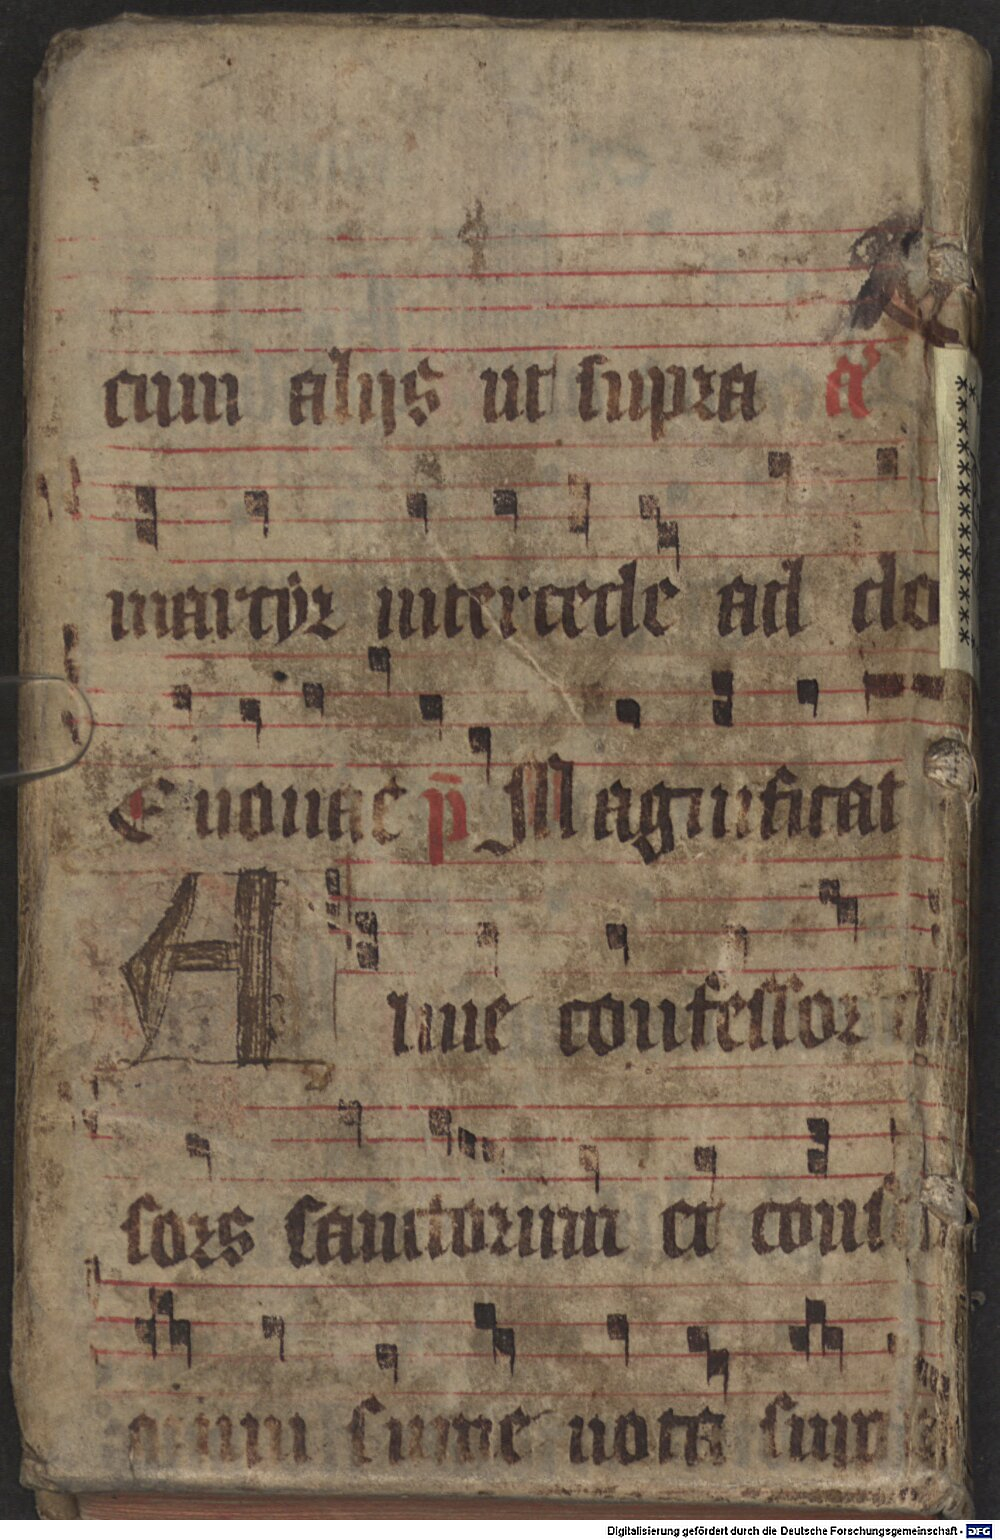 cum alijs ut supra a
martyr intercede ad do
Euouae p̄ Magnificat
Alme confessor
sors sanctorum et cons
sume uota sup
Digitalisierung gefördert durch die Deutsche Forschungsgemeinschaft - DFG